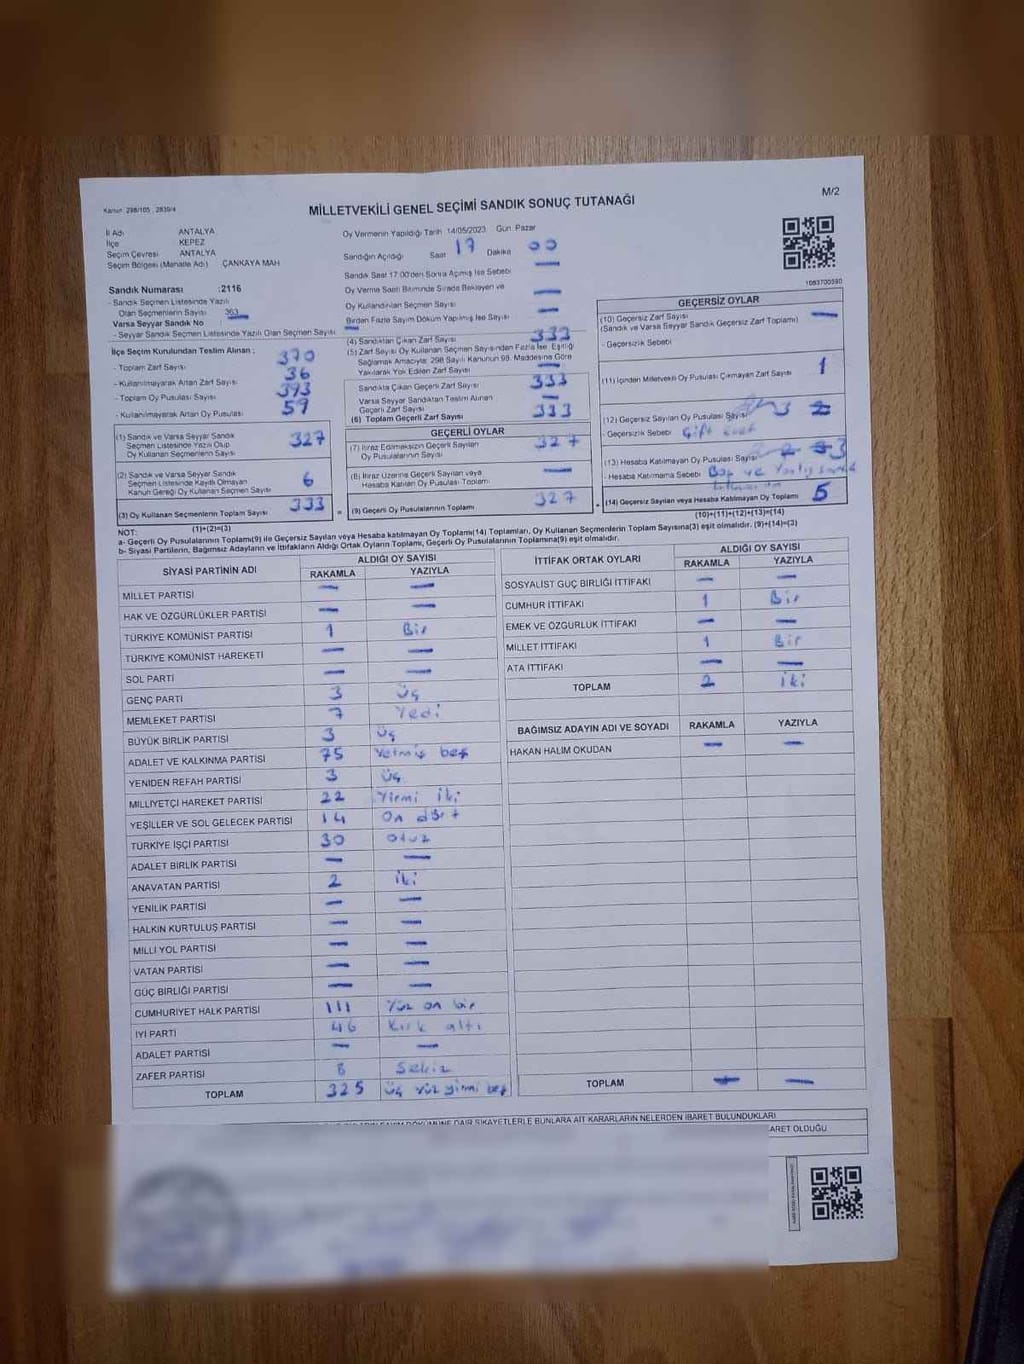 Kanun 298/105 , 2839/4
MİLLETVEKİLİ GENEL SEÇİMİ SANDIK SONUÇ TUTANAĞI
M/2
İl Adı ANTALYA
İlçe KEPEZ
Seçim Çevresi ANTALYA
Seçim Bölgesi (Mahalle Adı) ÇANKAYA MAH
Sandık Numarası :2116
- Sandık Seçmen Listesinde Yazılı
Olan Seçmenlerin Sayısı 363
Varsa Seyyar Sandık No —
- Seyyar Sandık Seçmen Listesinde Yazılı Olan Seçmen Sayısı —
İlçe Seçim Kurulundan Teslim Alınan ;
- Toplam Zarf Sayısı 370
- Kullanılmayarak Artan Zarf Sayısı 36
- Toplam Oy Pusulası Sayısı 393
- Kullanılmayarak Artan Oy Pusulası 59
(1) Sandık ve Varsa Seyyar Sandık
Seçmen Listesinde Yazılı Olup
Oy Kullanan Seçmenlerin Sayısı 327
(2) Sandık ve Varsa Seyyar Sandık
Seçmen Listesinde Kaydı Olmayan
Kanun Gereği Oy Kullanan Seçmen Sayısı 6
(3) Oy Kullanan Seçmenlerin Toplam Sayısı 333
(1)+(2)=(3)
Oy Vermenin Yapıldığı Tarih 14/05/2023 Gün Pazar
Sandığın Açıldığı Saat 17 Dakika 00
Sandık Saat 17:00'den Sonra Açılmış İse Sebebi —
Oy Verme Saati Bitiminde Sırada Bekleyen ve
Oy Kullandırılan Seçmen Sayısı —
Birden Fazla Sayım Döküm Yapılmış İse Sayısı —
(4) Sandıktan Çıkan Zarf Sayısı 333
(5) Zarf Sayısı Oy Kullanan Seçmen Sayısından Fazla İse, Eşitliği
Sağlamak Amacıyla; 298 Sayılı Kanunun 98. Maddesine Göre
Yakılarak Yok Edilen Zarf Sayısı —
Sandıkta Çıkan Geçerli Zarf Sayısı 333
Varsa Seyyar Sandıktan Teslim Alınan
Geçerli Zarf Sayısı —
(6) Toplam Geçerli Zarf Sayısı 333
GEÇERLİ OYLAR
(7) İtiraz Edilmeksizin Geçerli Sayılan
Oy Pusulalarının Sayısı 327
(8) İtiraz Üzerine Geçerli Sayılan veya
Hesaba Katılan Oy Pusulaları Toplamı —
(9) Geçerli Oy Pusulalarının Toplamı 327
1083700590
GEÇERSİZ OYLAR
(10) Geçersiz Zarf Sayısı —
(Sandık ve Varsa Seyyar Sandık Geçersiz Zarf Toplamı)
- Geçersizlik Sebebi
(11) İçinden Milletvekili Oy Pusulası Çıkmayan Zarf Sayısı 1
(12) Geçersiz Sayılan Oy Pusulası Sayısı 3 2
- Geçersizlik Sebebi Çift evet
(13) Hesaba Katılmayan Oy Pusulası Sayısı 3
- Hesaba Katılmama Sebebi Boş ve Yanlış sandık
(14) Geçersiz Sayılan veya Hesaba Katılmayan Oy Toplamı 5
(10)+(11)+(12)+(13)=(14)
NOT:
a- Geçerli Oy Pusulalarının Toplamı(9) ile Geçersiz Sayılan veya Hesaba katılmayan Oy Toplamı(14) Toplamları, Oy Kullanan Seçmenlerin Toplam Sayısına(3) eşit olmalıdır. (9)+(14)=(3)
b- Siyasi Partilerin, Bağımsız Adayların ve İttifakların Aldığı Ortak Oyların Toplamı, Geçerli Oy Pusulalarının Toplamına(9) eşit olmalıdır.
SİYASİ PARTİNİN ADI ALDIĞI OY SAYISI
RAKAMLA YAZIYLA
MİLLET PARTİSİ — —
HAK VE ÖZGÜRLÜKLER PARTİSİ — —
TÜRKİYE KOMÜNİST PARTİSİ 1 Bir
TÜRKİYE KOMÜNİST HAREKETİ — —
SOL PARTİ — —
GENÇ PARTİ 3 üç
MEMLEKET PARTİSİ 7 Yedi
BÜYÜK BİRLİK PARTİSİ 3 üç
ADALET VE KALKINMA PARTİSİ 75 Yetmiş beş
YENİDEN REFAH PARTİSİ 3 üç
MİLLİYETÇİ HAREKET PARTİSİ 22 Yirmi iki
YEŞİLLER VE SOL GELECEK PARTİSİ 14 On dört
TÜRKİYE İŞÇİ PARTİSİ 30 Otuz
ADALET BİRLİK PARTİSİ — —
ANAVATAN PARTİSİ 2 iki
YENİLİK PARTİSİ — —
HALKIN KURTULUŞ PARTİSİ — —
MİLLİ YOL PARTİSİ — —
VATAN PARTİSİ — —
GÜÇ BİRLİĞİ PARTİSİ — —
CUMHURİYET HALK PARTİSİ 111 Yüz on bir
İYİ PARTİ 46 Kırk altı
ADALET PARTİSİ — —
ZAFER PARTİSİ 8 Sekiz
TOPLAM 325 üç yüz yirmi beş
İTTİFAK ORTAK OYLARI ALDIĞI OY SAYISI
RAKAMLA YAZIYLA
SOSYALİST GÜÇ BİRLİĞİ İTTİFAKI — —
CUMHUR İTTİFAKI 1 Bir
EMEK VE ÖZGÜRLÜK İTTİFAKI — —
MİLLET İTTİFAKI 1 Bir
ATA İTTİFAKI — —
TOPLAM 2 iki
BAĞIMSIZ ADAYIN ADI VE SOYADI RAKAMLA YAZIYLA
HAKAN HALİM OKUDAN — —
TOPLAM — —
DÖKÜMÜNE DAİR ŞİKAYETLERLE BUNLARA AİT KARARLARIN NELERDEN İBARET BULUNDUKLARI
ARET OLDUĞU